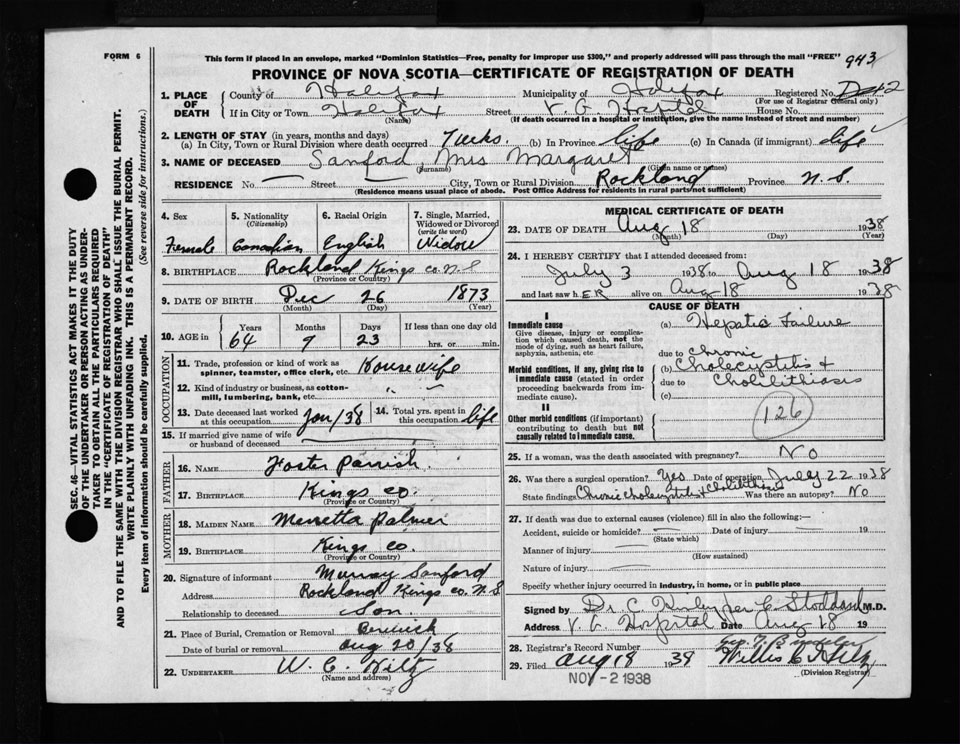 FORM 6
This form if placed in an envelope, marked "Dominion Statistics—Free, penalty for improper use $300," and properly addressed will pass through the mail "FREE"
943
PROVINCE OF NOVA SCOTIA—CERTIFICATE OF REGISTRATION OF DEATH
1. PLACE OF DEATH
County of Halifax Municipality of Halifax Registered No.
(For use of Registrar General only)
If in City or Town Halifax Street V. G. Hospital House No.
(Name) (If death occurred in a hospital or institution, give the name instead of street and number)
2. LENGTH OF STAY (in years, months and days)
(a) In City, Town or Rural Division where death occurred 7 wks. (b) In Province life (c) In Canada (if immigrant) life
3. NAME OF DECEASED Sanford, Mrs Margaret
(Surname) (Given name or names)
RESIDENCE No. — Street — City, Town or Rural Division Rockland Province N. S.
(Residence means usual place of abode. Post Office Address for residents in rural parts not sufficient)
4. Sex
Female
5. Nationality
(Citizenship)
Canadian
6. Racial Origin
English
7. Single, Married, Widowed or Divorced
(write the word)
Widow
8. BIRTHPLACE Rockland Kings co. N S
(Province or Country)
9. DATE OF BIRTH Dec 26 1873
(Month) (Day) (Year)
10. AGE in
Years Months Days If less than one day old
64 9 23 hrs. or min.
OCCUPATION
11. Trade, profession or kind of work as spinner, teamster, office clerk, etc. Housewife
12. Kind of industry or business, as cotton-mill, lumbering, bank, etc.
13. Date deceased last worked at this occupation Jan/38
14. Total yrs. spent in this occupation life
15. If married give name of wife or husband of deceased
FATHER
16. NAME Foster Parrish
17. BIRTHPLACE Kings co.
(Province or Country)
MOTHER
18. MAIDEN NAME Merretta Palmer
19. BIRTHPLACE Kings co.
(Province or Country)
20. Signature of informant Murray Sanford
Address Rockland Kings co. N. S
Relationship to deceased Son.
21. Place of Burial, Cremation or Removal Berwick
Date of burial or removal Aug 20/38
22. UNDERTAKER W. C. Wiltz
(Name and address)
MEDICAL CERTIFICATE OF DEATH
23. DATE OF DEATH Aug 18 1938
(Month) (Day) (Year)
24. I HEREBY CERTIFY that I attended deceased from:
July 3 1938 to Aug 18 1938
and last saw hER alive on Aug 18 1938
CAUSE OF DEATH
I
Immediate cause
Give disease, injury or complication which caused death, not the mode of dying, such as heart failure, asphyxia, asthenia, etc
(a) Hepatic Failure
due to Chronic
Morbid conditions, if any, giving rise to immediate cause (stated in order proceeding backwards from immediate cause).
(b) Cholecystitis &
due to Cholilithiasis
(c)
II
Other morbid conditions (if important) contributing to death but not causally related to immediate cause.
126
25. If a woman, was the death associated with pregnancy? No
26. Was there a surgical operation? Yes Date of operation July 22 1938
State findings Chronic cholecystitis & Cholilithiasis Was there an autopsy? No
27. If death was due to external causes (violence) fill in also the following:—
Accident, suicide or homicide? — Date of injury — 19
(State which)
Manner of injury —
(How sustained)
Nature of injury —
Specify whether injury occurred in industry, in home, or in public place
Signed by Dr. C. per C Stoddard M.D.
Address V. G. Hospital Date Aug 18 19
28. Registrar's Record Number
29. Filed Aug 18 1938
(Division Registrar)
NOV - 2 1938
SEC. 46—VITAL STATISTICS ACT MAKES IT THE DUTY
OF THE UNDERTAKER OR PERSON ACTING AS UNDER-
TAKER TO OBTAIN ALL THE PARTICULARS REQUIRED
IN THE "CERTIFICATE OF REGISTRATION OF DEATH"
AND TO FILE THE SAME WITH THE DIVISION REGISTRAR WHO SHALL ISSUE THE BURIAL PERMIT.
WRITE PLAINLY WITH UNFADING INK. THIS IS A PERMANENT RECORD.
Every item of information should be carefully supplied. (See reverse side for instructions.)